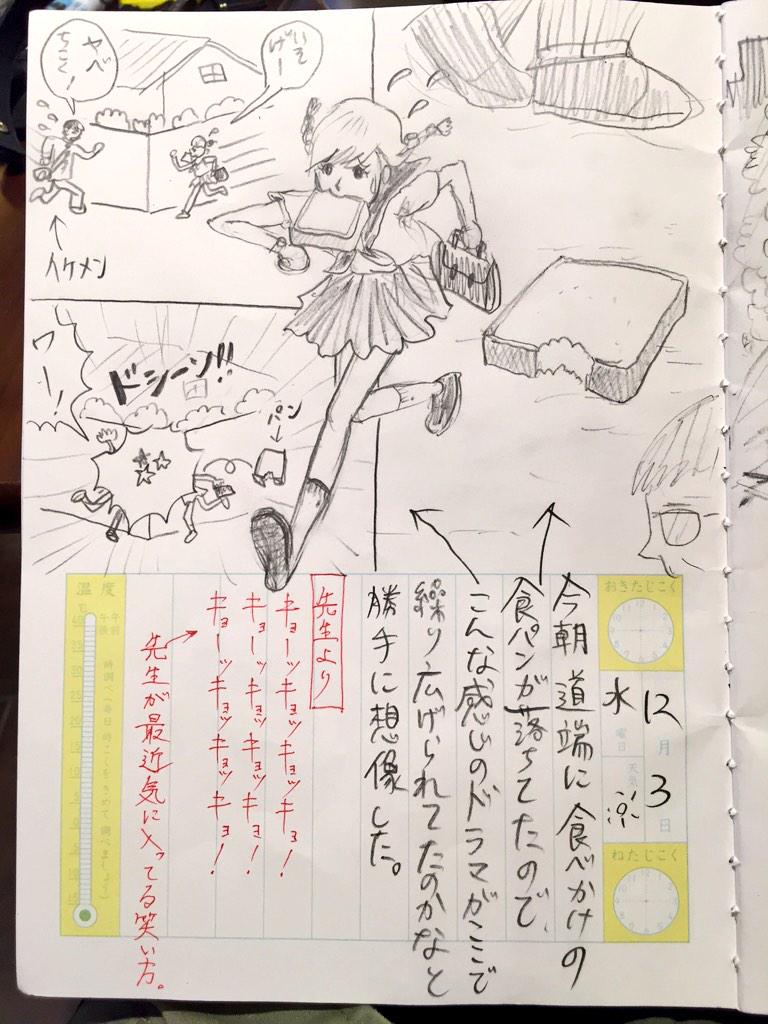 ヤベ
ちこく！
いそ
げー
イケメン
ワー！
ドシーン!!
パン
おきたじこく
12月
3日
水曜日
天気
ねたじこく
今朝道端に食べかけの
食パンが落ちてたので、
こんな感じのドラマがここで
繰り広げられてたのかなと
勝手に想像した。
先生より
キョーッキョッキョッキョ！
キョーッキョッキョッキョ！
キョーッキョッキョッキョ！
先生が最近気に入ってる笑い方。
温度
午前
午後
時調べ（毎日時こくをきめて調べましょう）